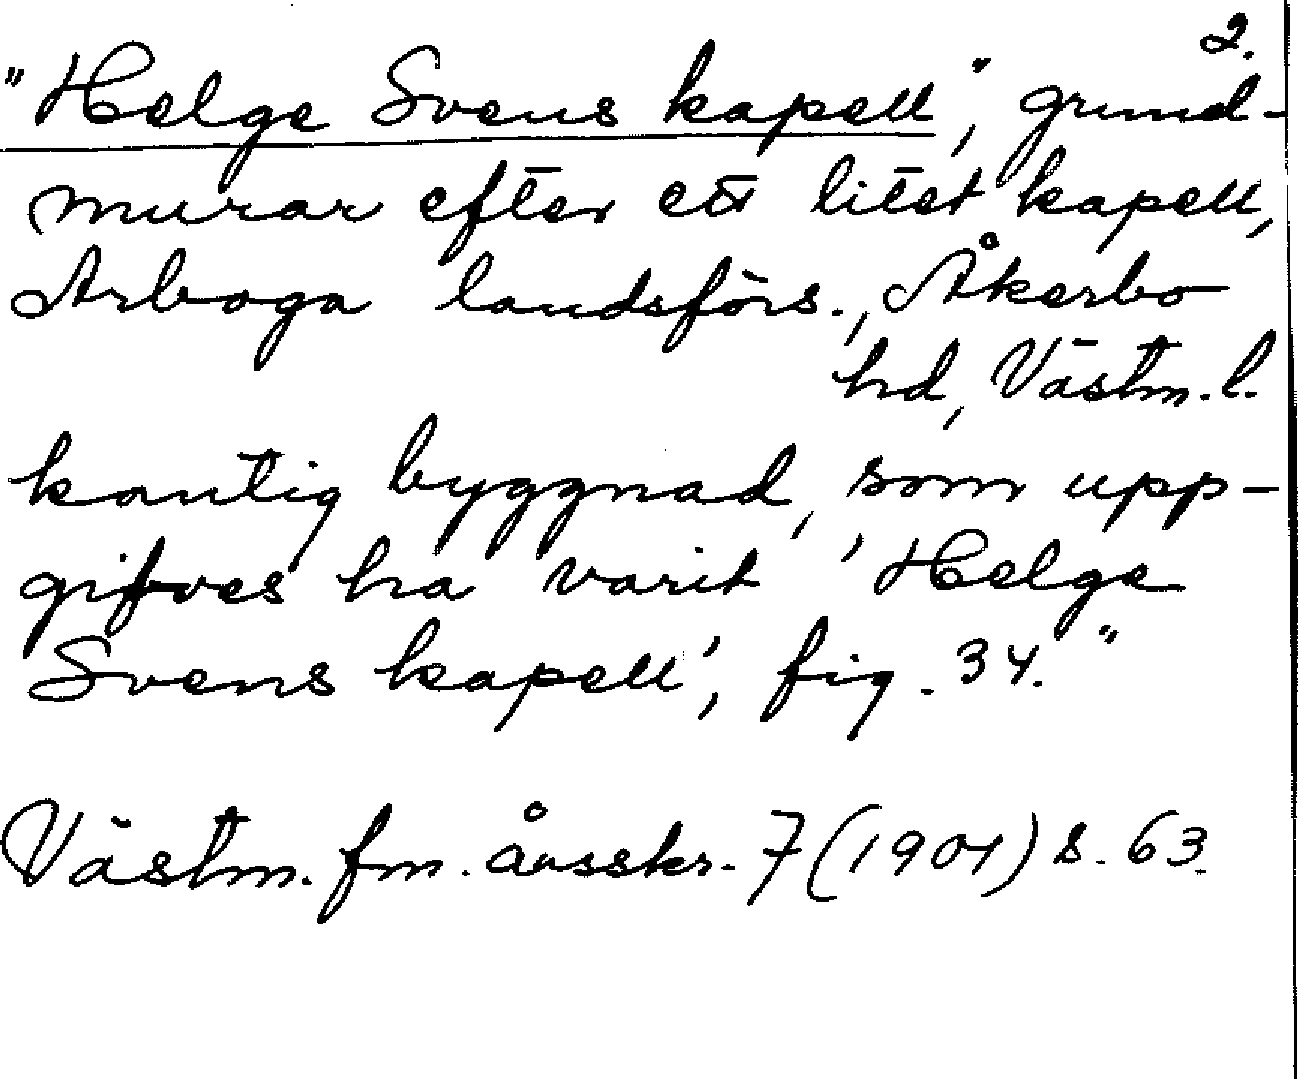 2.
"Helge Svens kapell", grund-
murar efter ett litet kapell,
Arboga landsförs., Åkerbo
hd, Västm. l.
kantig byggnad, som upp-
gifves ha varit 'Helge
Svens kapell', fig. 34."
Västm. fm. årsskr. 7 (1901) s. 63.